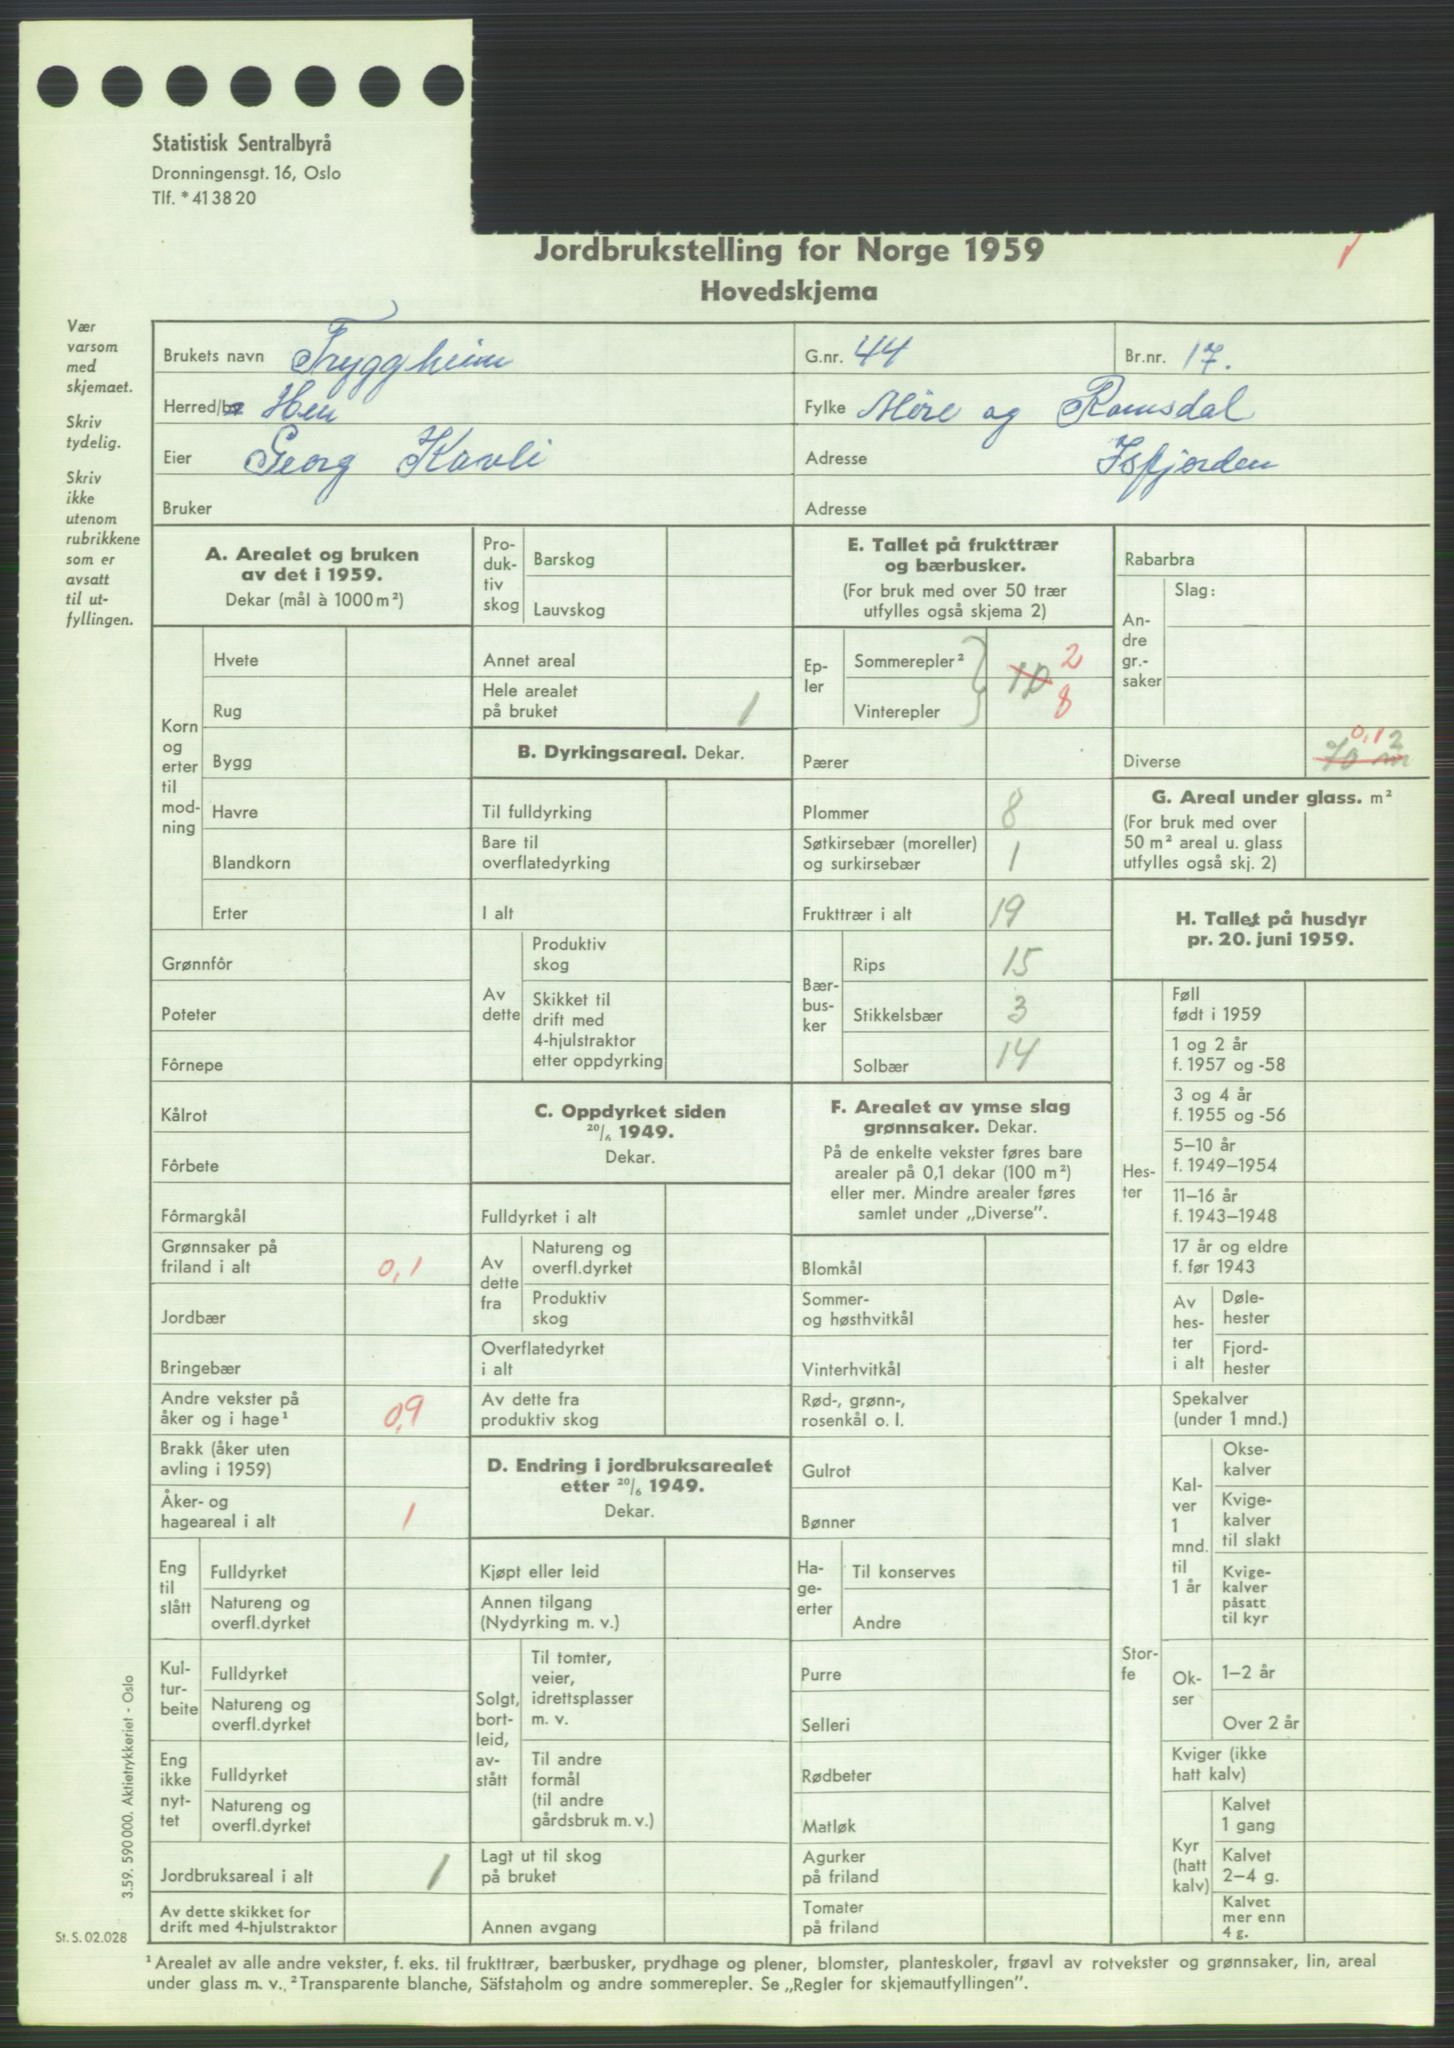 Statistisk Sentralbyrå
Dronningensgt. 16, Oslo
Tlf. * 41 38 20
Jordbrukstelling for Norge 1959
Hovedskjema
Vær
varsom
med
skjemaet.
Skriv
tydelig.
Skriv
ikke
utenom
rubrikkene
som er
avsatt
til ut-
fyllingen.
Brukets navn Tryggheim
G.nr. 44
Br.nr. 17.
Herred/ Hen
Fylke Møre og Romsdal
Eier Georg Kavli
Adresse Isfjorden
Bruker
Adresse
A. Arealet og bruken
av det i 1959.
Dekar (mål à 1000 m²)
Korn
og
erter
til
mod-
ning
Hvete
Rug
Bygg
Havre
Blandkorn
Erter
Grønnfôr
Poteter
Fôrnepe
Kålrot
Fôrbete
Fôrmargkål
Grønnsaker på
friland i alt 0,1
Jordbær
Bringebær
Andre vekster på
åker og i hage¹ 0,9
Brakk (åker uten
avling i 1959)
Åker- og
hageareal i alt 1
Eng
til
slått
Fulldyrket
Natureng og
overfl.dyrket
Kul-
tur-
beite
Fulldyrket
Natureng og
overfl.dyrket
Eng
ikke
nyt-
tet
Fulldyrket
Natureng og
overfl.dyrket
Jordbruksareal i alt 1
Av dette skikket for
drift med 4-hjulstraktor
Pro-
duk-
tiv
skog
Barskog
Lauvskog
Annet areal
Hele arealet
på bruket 1
B. Dyrkingsareal. Dekar.
Til fulldyrking
Bare til
overflatedyrking
I alt
Av
dette
Produktiv
skog
Skikket til
drift med
4-hjulstraktor
etter oppdyrking
C. Oppdyrket siden
20/6 1949.
Dekar.
Fulldyrket i alt
Av
dette
fra
Natureng og
overfl.dyrket
Produktiv
skog
Overflatedyrket
i alt
Av dette fra
produktiv skog
D. Endring i jordbruksarealet
etter 20/6 1949.
Dekar.
Kjøpt eller leid
Annen tilgang
(Nydyrking m. v.)
Solgt,
bort-
leid,
av-
stått
Til tomter,
veier,
idrettsplasser
m. v.
Til andre
formål
(til andre
gårdsbruk m. v.)
Lagt ut til skog
på bruket
Annen avgang
E. Tallet på frukttrær
og bærbusker.
(For bruk med over 50 trær
utfylles også skjema 2)
Ep-
ler
Sommerepler² 2
10
Vinterepler 8
Pærer
Plommer 8
Søtkirsebær (moreller)
og surkirsebær 1
Frukttrær i alt 19
Bær-
bus-
ker
Rips 15
Stikkelsbær 3
Solbær 14
F. Arealet av ymse slag
grønnsaker. Dekar.
På de enkelte vekster føres bare
arealer på 0,1 dekar (100 m²)
eller mer. Mindre arealer føres
samlet under „Diverse”.
Blomkål
Sommer-
og høsthvitkål
Vinterhvitkål
Rød-, grønn-,
rosenkål o. l.
Gulrot
Bønner
Ha-
ge-
erter
Til konserves
Andre
Purre
Selleri
Rødbeter
Matløk
Agurker
på friland
Tomater
på friland
Rabarbra
An-
dre
gr.-
saker
Slag:
0,1 2
Diverse 70 m
G. Areal under glass. m²
(For bruk med over
50 m² areal u. glass
utfylles også skj. 2)
H. Tallet på husdyr
pr. 20. juni 1959.
Hes-
ter
Føll
født i 1959
1 og 2 år
f. 1957 og -58
3 og 4 år
f. 1955 og -56
5–10 år
f. 1949–1954
11–16 år
f. 1943–1948
17 år og eldre
f. før 1943
Av
hes-
ter
i alt
Døle-
hester
Fjord-
hester
Stor-
fe
Spekalver
(under 1 mnd.)
Kal-
ver
1
mnd.
til
1 år
Okse-
kalver
Kvige-
kalver
til slakt
Kvige-
kalver
påsatt
til kyr
Ok-
ser
1–2 år
Over 2 år
Kviger (ikke
hatt kalv)
Kyr
(hatt
kalv)
Kalvet
1 gang
Kalvet
2–4 g.
Kalvet
mer enn
4 g.
3.59. 590 000. Aktietrykkeriet - Oslo
St. S. 02.028
¹ Arealet av alle andre vekster, f. eks. til frukttrær, bærbusker, prydhage og plener, blomster, planteskoler, frøavl av rotvekster og grønnsaker, lin, areal
under glass m. v., ² Transparente blanche, Säfstaholm og andre sommerepler. Se „Regler for skjemautfyllingen”.